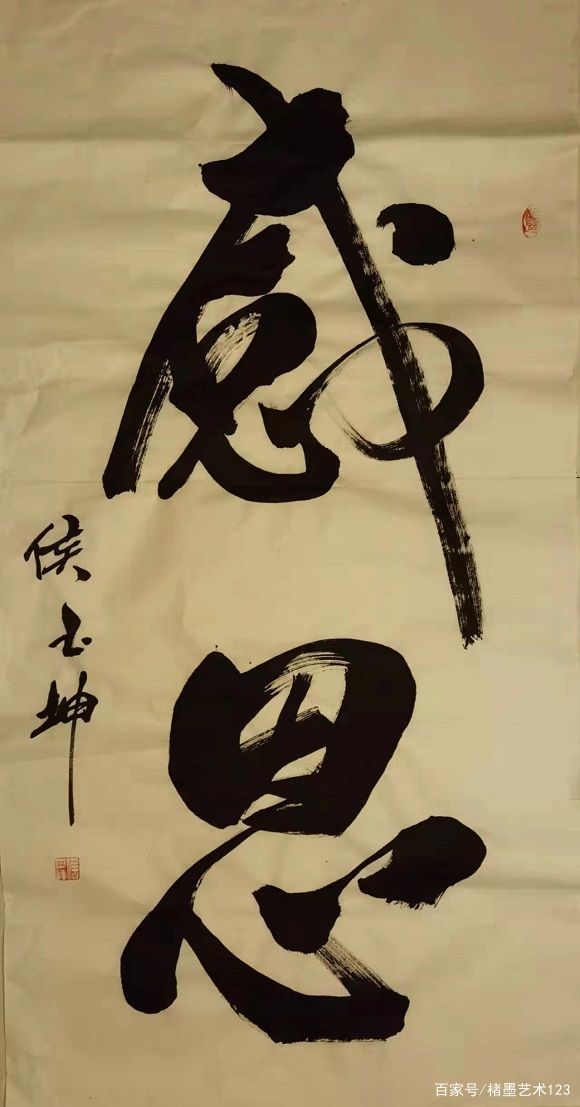 感恩
侯玉坤
百家号/楮墨艺术123